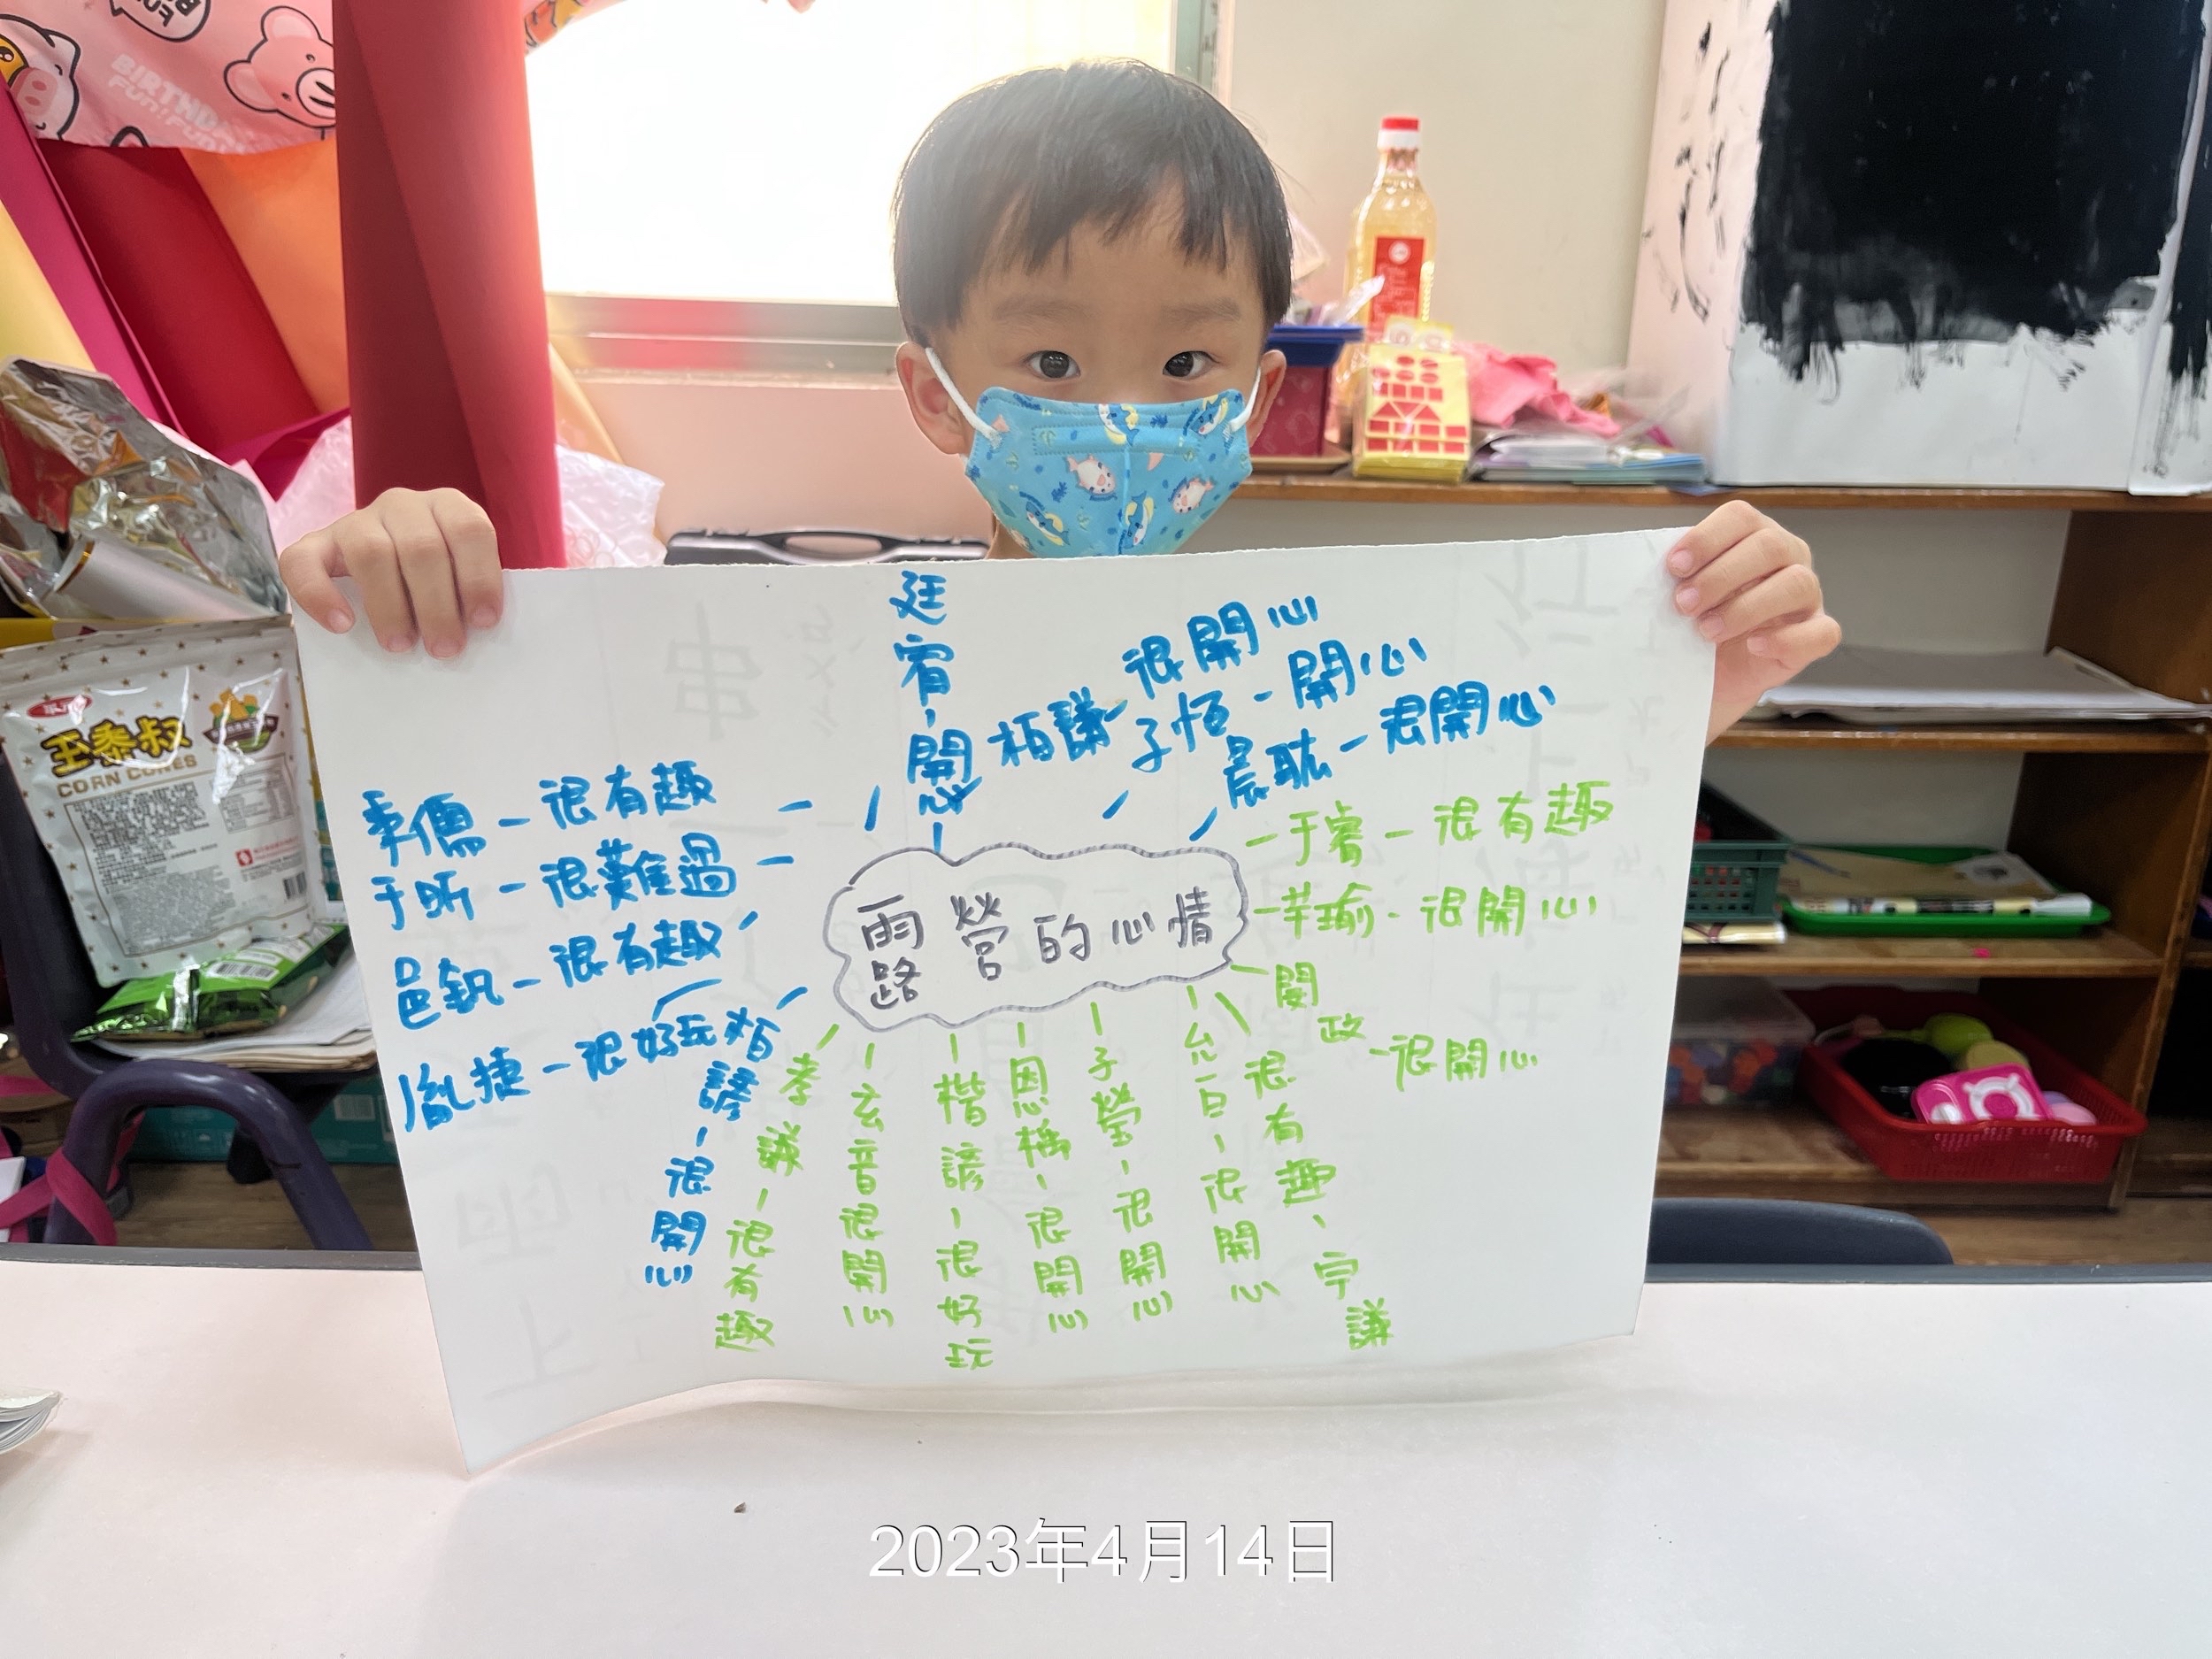 FUN
BIRTHDAY
FUN!FU
廷宥-開心
柏謙-很開心
子恆-開心
晨耾-君開心
于睿-很有趣
芊瑜-很開心
閎政-很開心
很有趣、宇謙
允百-很開心
子瑩-很開心
恩稱-很開心
楷諺-很好玩
玄音很開心
孝議-很有趣
栢諺-很開心
胤捷-很好玩
邑釩-很有趣
于昕-很難過
秉儒-很有趣
雨營的心情
路
王泰叔
CORN CONES
2023年4月14日